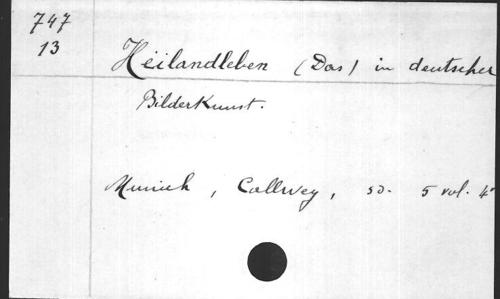 747
13
Heilandleben (Das) in deutscher
Bilderkunst.
Munich, Callwey, sd. 5 vol. 4°